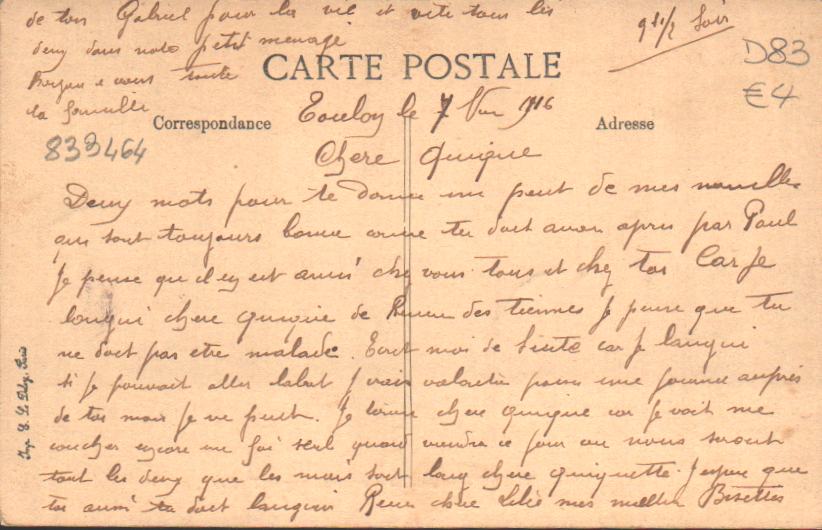 CARTE POSTALE
Correspondance
Adresse
9 h 1/2 Soir
D83
€4
833464
Toulon le 7 1916
Chere Quique
Deux mots pour te donne un peut de mes nouvelles
qui sont toujours bonne comme tu doit avoir apris par Paul
Je pense qu'il en est ausi chez vous tous et chez toi Car Je
langui chere quique de des tiennes Je pense que tu
ne doit pas etre malade. Ecrit moi de suite car Je langui
si Je pouvait aller labat J'irais volontier passer une journee aupres
de toi mais Je ne peut. Je chere quique car Je vait me
coucher encore un foi seul quand viendra ce jour ou nous seront
tout les deux que les mois sont long chere quiquette. J'espere que
toi ausi tu doit languir chere mes meilleur Bisettes
de ton Gabriel pour la vie et vite tous les
deux dans notre petit menage
toute
la famille
Imp.